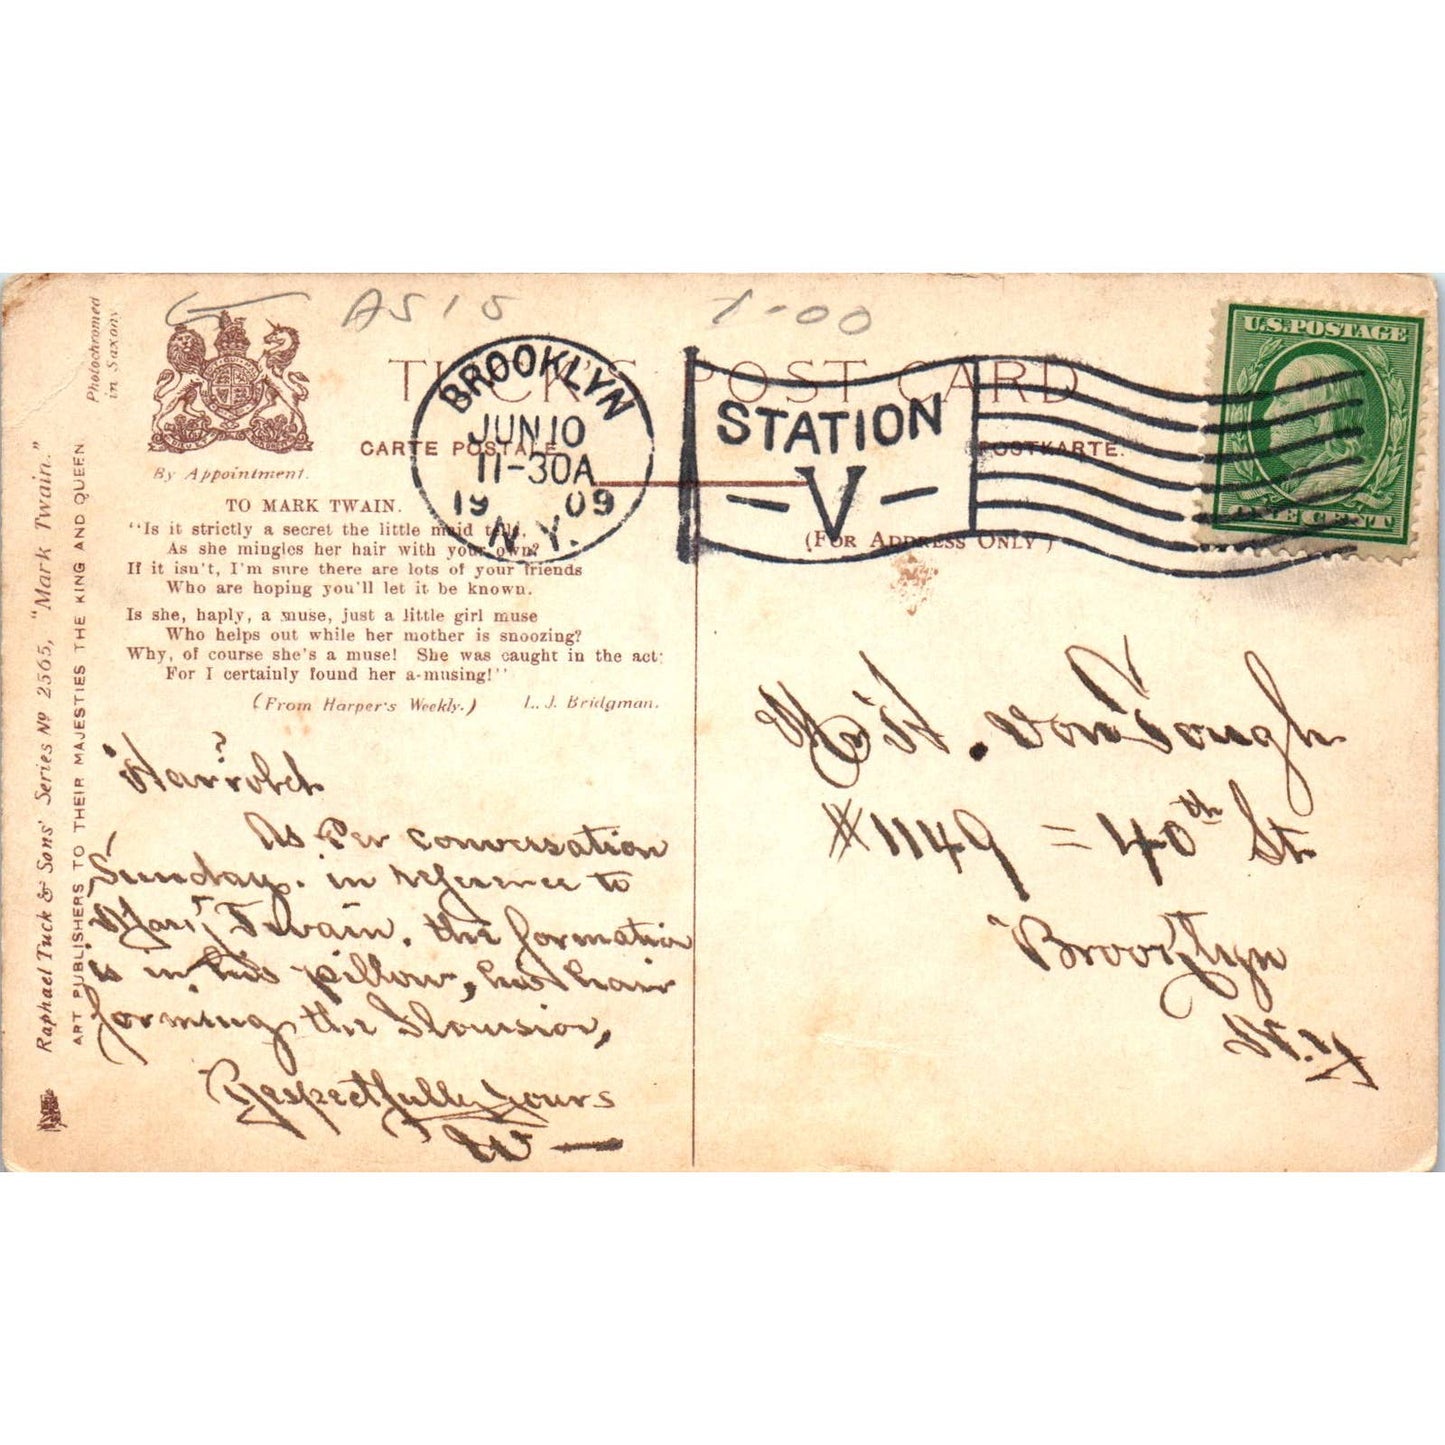 AS15
1-00
Photochromed
in Saxony
TUCK'S POST CARD
CARTE POSTALE
POSTKARTE.
By Appointment.
BROOKLYN
JUN 10
11-30A
1909
N.Y.
STATION
- V -
U.S. POSTAGE
ONE CENT
(For Address Only)
TO MARK TWAIN.
"Is it strictly a secret the little maid tells.
As she mingles her hair with your own?
If it isn't, I'm sure there are lots of your friends
Who are hoping you'll let it be known.
Is she, haply, a muse, just a little girl muse
Who helps out while her mother is snoozing?
Why, of course she's a muse! She was caught in the act;
For I certainly found her a-musing!"
(From Harper's Weekly.) L. J. Bridgman.
Raphael Tuck & Sons' Series No 2565, "Mark Twain."
ART PUBLISHERS TO THEIR MAJESTIES THE KING AND QUEEN
Harrold
As Per conversation
Sunday. in reference to
Mark Twain. the formation
is in his pillow, his hair
forming the
Respectfully Yours
Mr H. von
#1149 = 40th St.
Brooklyn
N.Y.